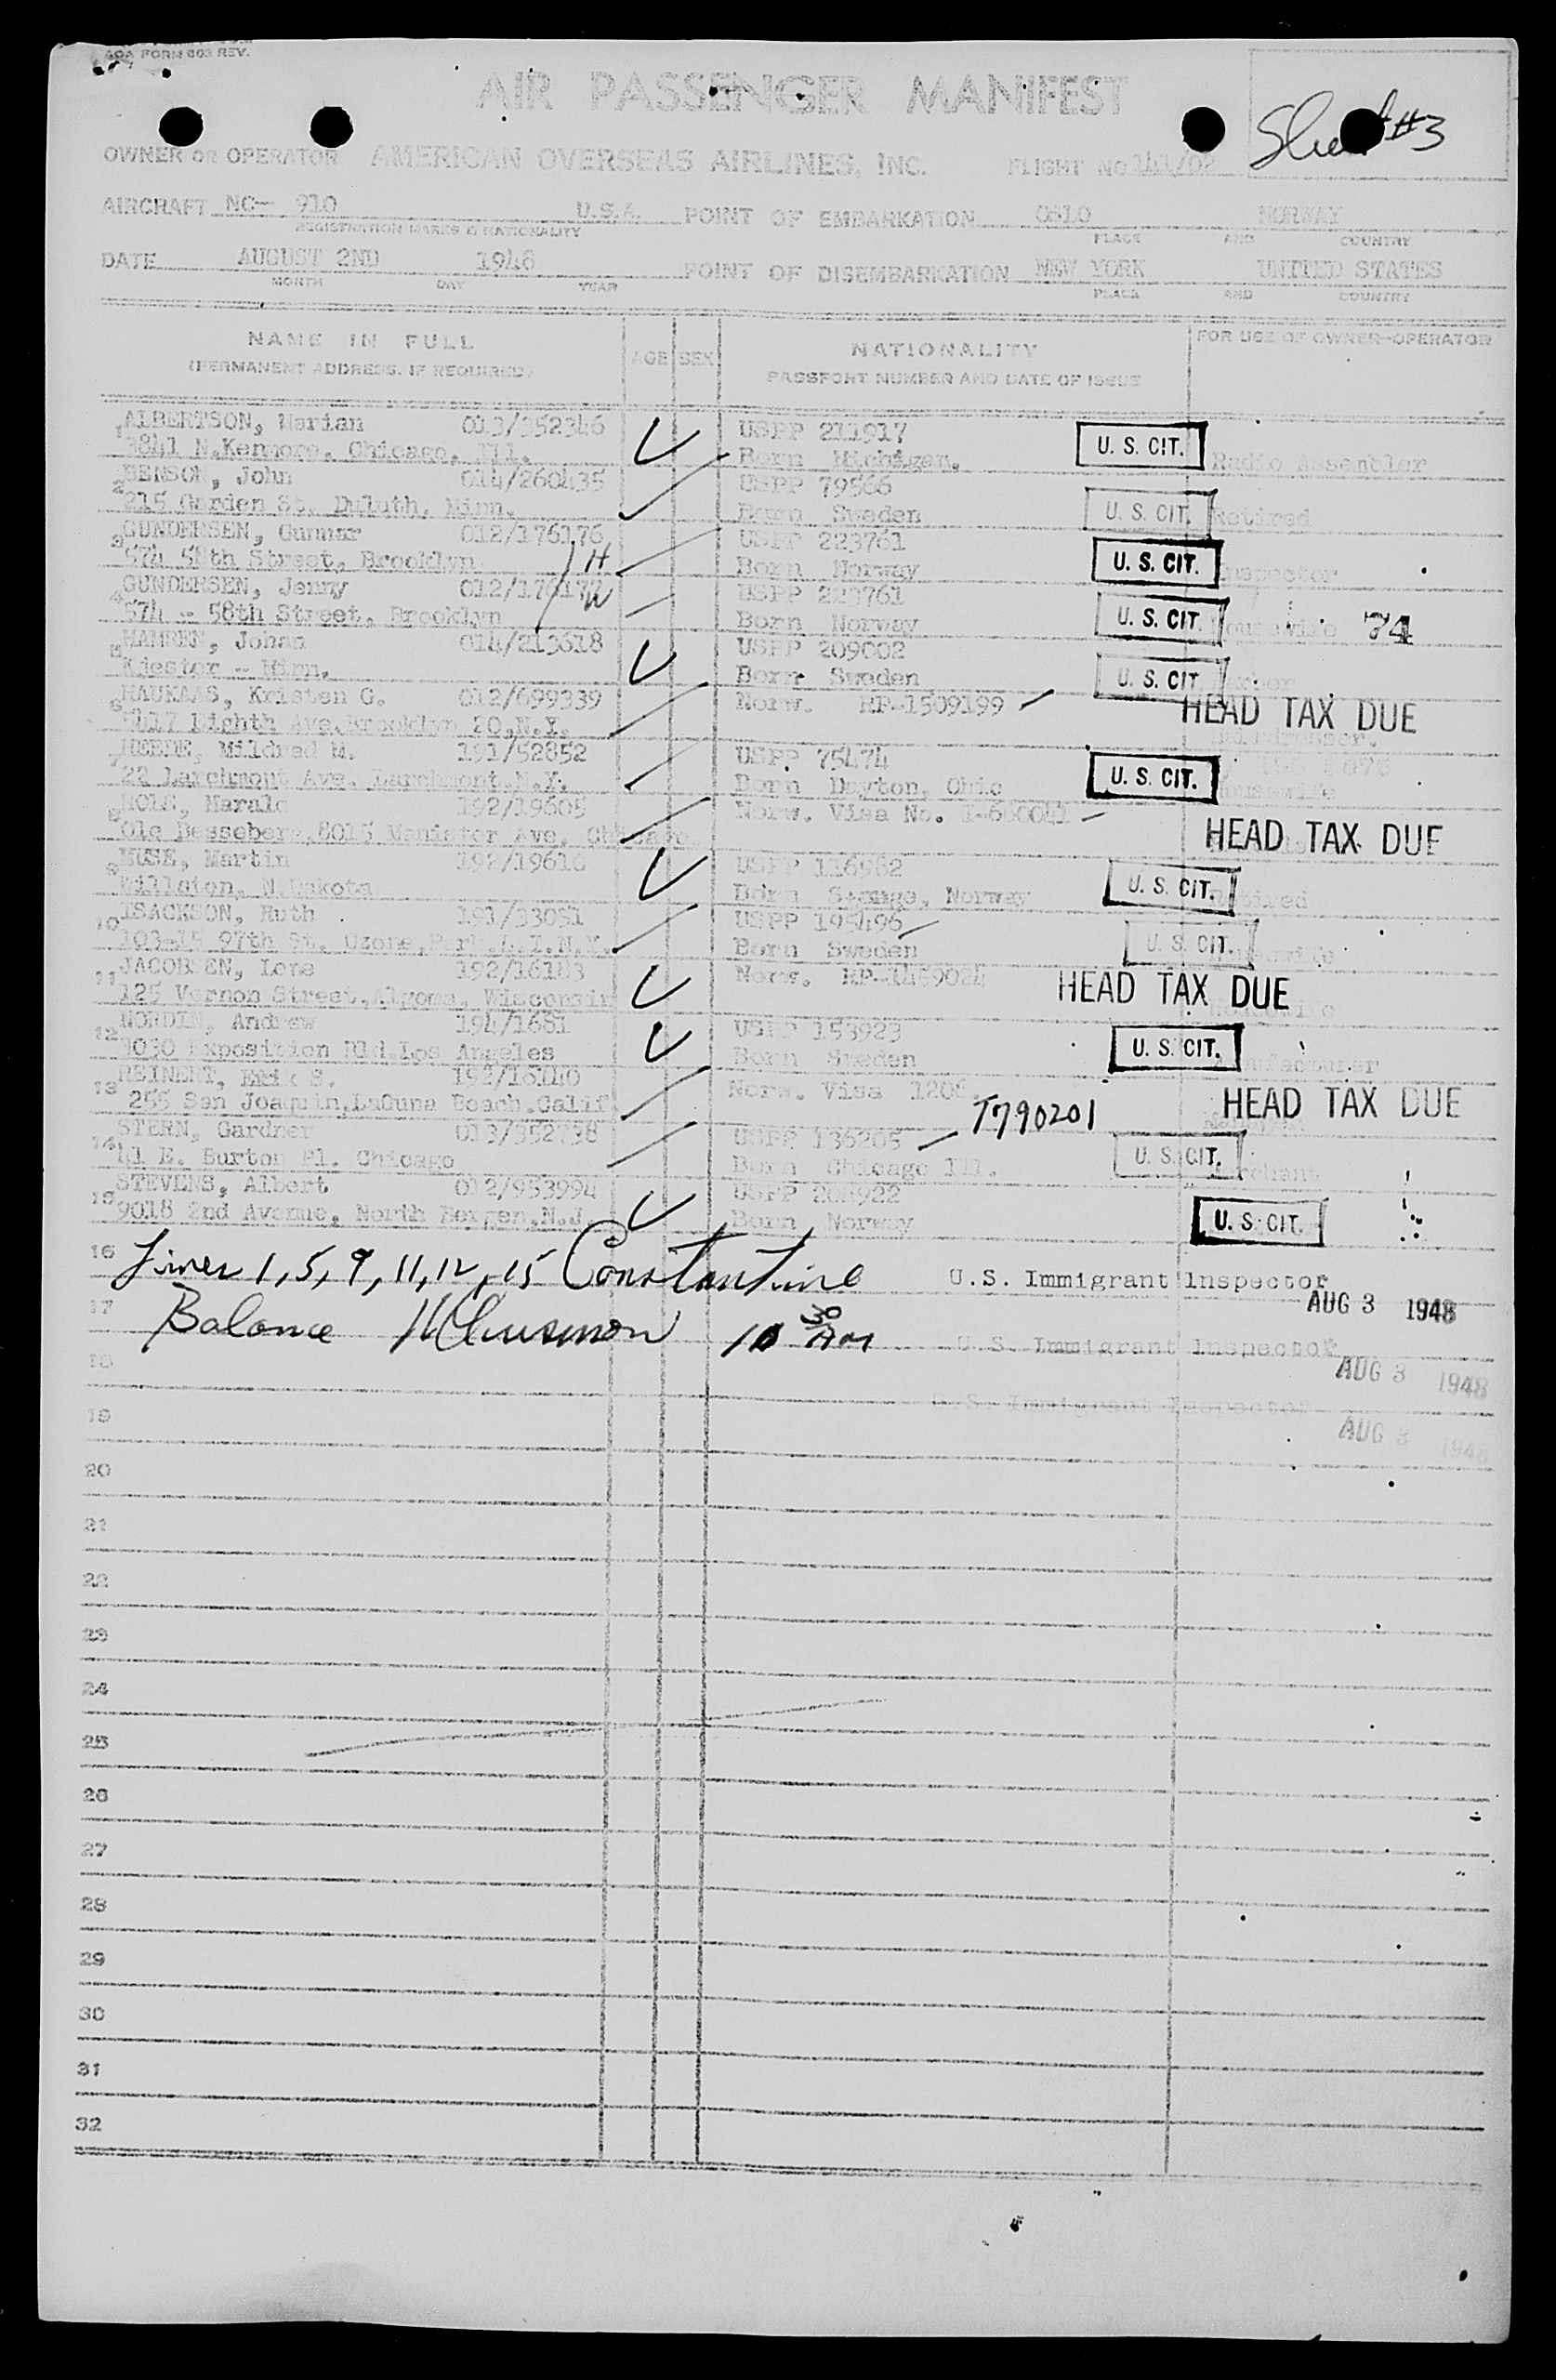 AOA FORM 003 REV.
AIR PASSENGER MANIFEST
Sheet #3
OWNER OR OPERATOR AMERICAN OVERSEAS AIRLINES, INC. FLIGHT NO
AIRCRAFT NC- 910 U.S.A. POINT OF EMBARKATION OSLO NORWAY
REGISTRATION MARKS & NATIONALITY PLACE AND COUNTRY
DATE AUGUST 2ND 1948 POINT OF DISEMBARKATION NEW YORK UNITED STATES
MONTH DAY YEAR PLACE AND COUNTRY
NAME IN FULL AGE SEX NATIONALITY FOR USE OF OWNER-OPERATOR
(PERMANENT ADDRESS, IF REQUIRED) PASSPORT NUMBER AND DATE OF ISSUE
1 ALBERTSON, Marian 013/352346 USPP 211917
3841 N.Kenmore, Chicago, Ill. Born Michigan. U. S. CIT. Radio Assembler
2 BENSON, John 014/260435 USPP 79566
215 Garden St. Duluth, Minn. Born Sweden U. S. CIT. Retired
3 GUNDERSEN, Gunnar 012/176176 USPP 223761
574 58th Street, Brooklyn H Born Norway U. S. CIT. Inspector
4 GUNDERSEN, Jenny 012/176177 W USPP 223761
574 - 58th Street, Brooklyn Born Norway U. S. CIT. Housewife 74
5 Johan 014/213618 USPP 209002
Kiester - Minn. Born Sweden U. S. CIT
6 HAUKAAS, Kristen G. 012/699339 Norw. RP-1509199 HEAD TAX DUE
5417 Eighth Ave. Brooklyn 20, N.Y.
7 Mildred M. 191/52852 USPP 75474
22 Larchmont Ave. Larchmont, N.Y. Born Dayton, Ohio U. S. CIT. Housewife
8 192/19605 Norw. Visa No.
Ole Besseberg, 8015 Manistor Ave, Chicago HEAD TAX DUE
9 Martin 192/19610 USPP 116982
N.Dakota Born Norway U. S. CIT. Retired
10 ISACKSON, Ruth 191/33051 USPP 195496
103-15 97th St. Ozone Park, L.I.N.Y. Born Sweden U. S. CIT. Housewife
11 JACOBSEN, Lore 192/16183 Norw. HEAD TAX DUE
125 Vernon Street, Algoma, Wisconsin Housewife
12 NORDIN, Andrew 194/1681 USPP 153923
3030 Exposition Bld. Los Angeles Born Sweden U. S. CIT. Manufacturer
13 REINERT, Erik S. 192/16140 Norw. Visa T790201 HEAD TAX DUE
255 San Joaquin, Laguna Beach. Calif
14 STERN, Gardner USPP 136205
41 E. Burton Pl. Chicago Born Chicago Ill. U. S. CIT. Merchant
15 STEVENS, Albert 012/953994 USPP
9018 2nd Avenue, North Bergen, N.J. Born Norway U. S. CIT.
16 Lines 1, 5, 9, 11, 12, 15 Constantine U.S. Immigrant Inspector
AUG 3 1948
17 Balance 10 30 AM U.S. Immigrant Inspector
18 AUG 3 1948
U.S. Immigrant Inspector
19 AUG 3 1948
20
21
22
23
24
25
26
27
28
29
30
31
32